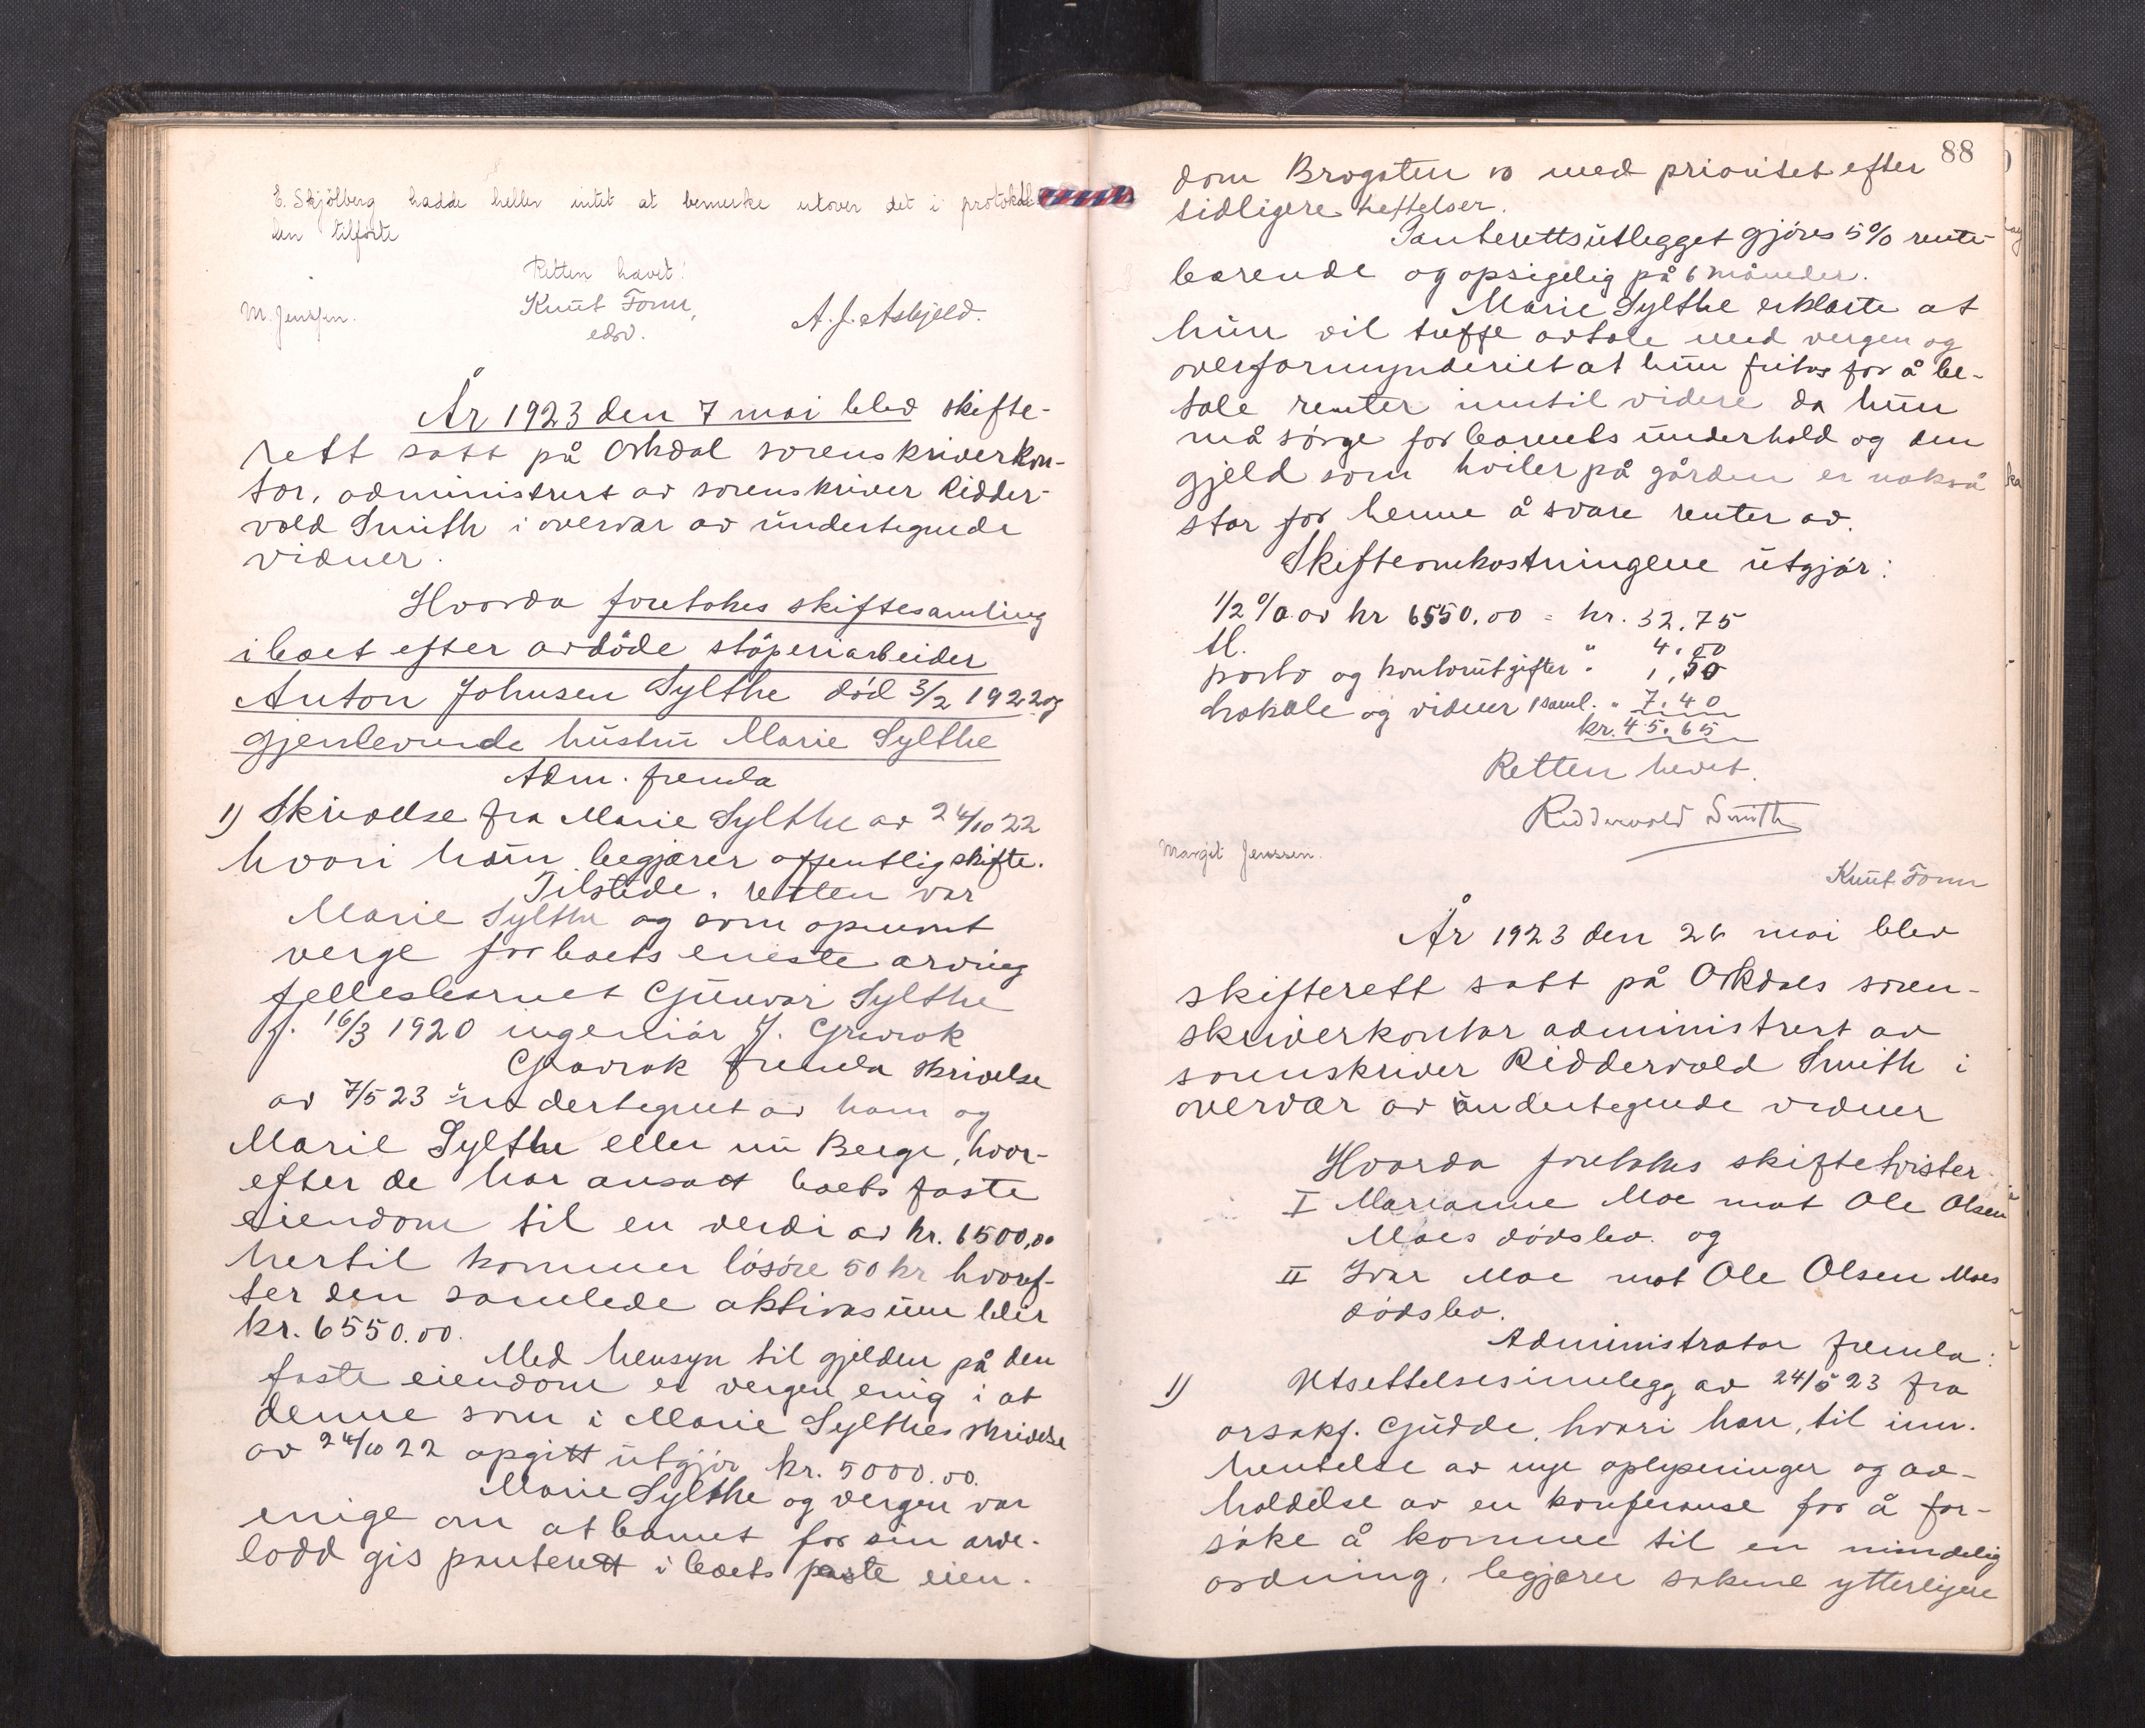 E. Skjölberg hadde heller intet at bemerke utover det i protokol-
len tilførte
Retten hævet!
M. Jenssen. Knut Tonn, A. J. Askjeld.
edsv.
År 1923 den 7 mai blev skifte-
rett satt på Orkdal sorenskriverkon-
tor, administrert av sorenskriver Ridder-
vold Smith i overvær av undertegnede
vidner.
Hvorda foretokes skiftesamling
i boet efter avdöde stöperiarbeider
Anton Johnsen Sylthe död 3/2 1922 og
gjenlevende hustru Marie Sylthe
Adm. fremla
1) Skrivelse fra Marie Sylthe av 24/10 22
hvori hun begjærer offentlig skifte.
Tilstede i retten var
Marie Sylthe og som opnevnt
verge for boets eneste arving
fellesbarnet Gunvor Sylthe
f. 16/3 1920 ingeniör J. Gravrok
Gravrok fremla skrivelse
av 7/5 23 undertegnet av ham og
Marie Sylthe eller nu Berge, hvor-
efter de har ansatt boets faste
eiendom til en verdi av kr. 6500,00
hertil kommer lösöre 50 kr hvoref-
ter den samlede aktivasum blir
kr. 6550.00.
Med hensyn til gjelden på den
faste eiendom er vergen enig i at
denne som i Marie Sylthes skrivelse
av 24/10 22 opgitt utgjör kr. 5000.00.
Marie Sylthe og vergen var
enige om at barnet for sin arve-
lodd gis panterett i boets faste eien-
88
dom Brogsten 10 med prioritet efter
tidligere heftelser.
Panterettsutlegget gjöres 5% rente-
bærende og opsigelig på 6 måneder.
Marie Sylthe erklærte at
hun vil treffe avtale med vergen og
overformynderiet at hun fritas for å be-
tale renter inntil videre da hun
må sörge for barnets underhold og den
gjeld som hviler på gården er nokså
stor for henne å svare renter av.
Skifteomkostningene utgjör:
1/2 % av kr 6550.00 = kr. 32.75
St. " 4.00
porto og kontorutgifter " 1,50
Lokale og vidner 1 saml. " 7.40
kr. 45.65
Retten hevet.
Riddervold Smith
Margit Jenssen.
Knut Tonn
År 1923 den 26 mai blev
skifterett satt på Orkdals soren-
skriverkontor administrert av
sorenskriver Riddervold Smith i
overvær av undertegnede vidner
Hvorda foretokes skiftetvister
I Marianne Moe mot Ole Olsen
Moes dödsbo og
II Ivar Moe mot Ole Olsen Moes
dödsbo.
Administrator fremla:
1) Utsettelsesinnlegg av 24/5 23 fra
orsakf. Gudde, hvori han, til inn-
hentelse av nye oplysninger og av-
holdelse av en konferanse for å for-
söke å komme til en mindelig
ordning, begjærer sakene ytterligere